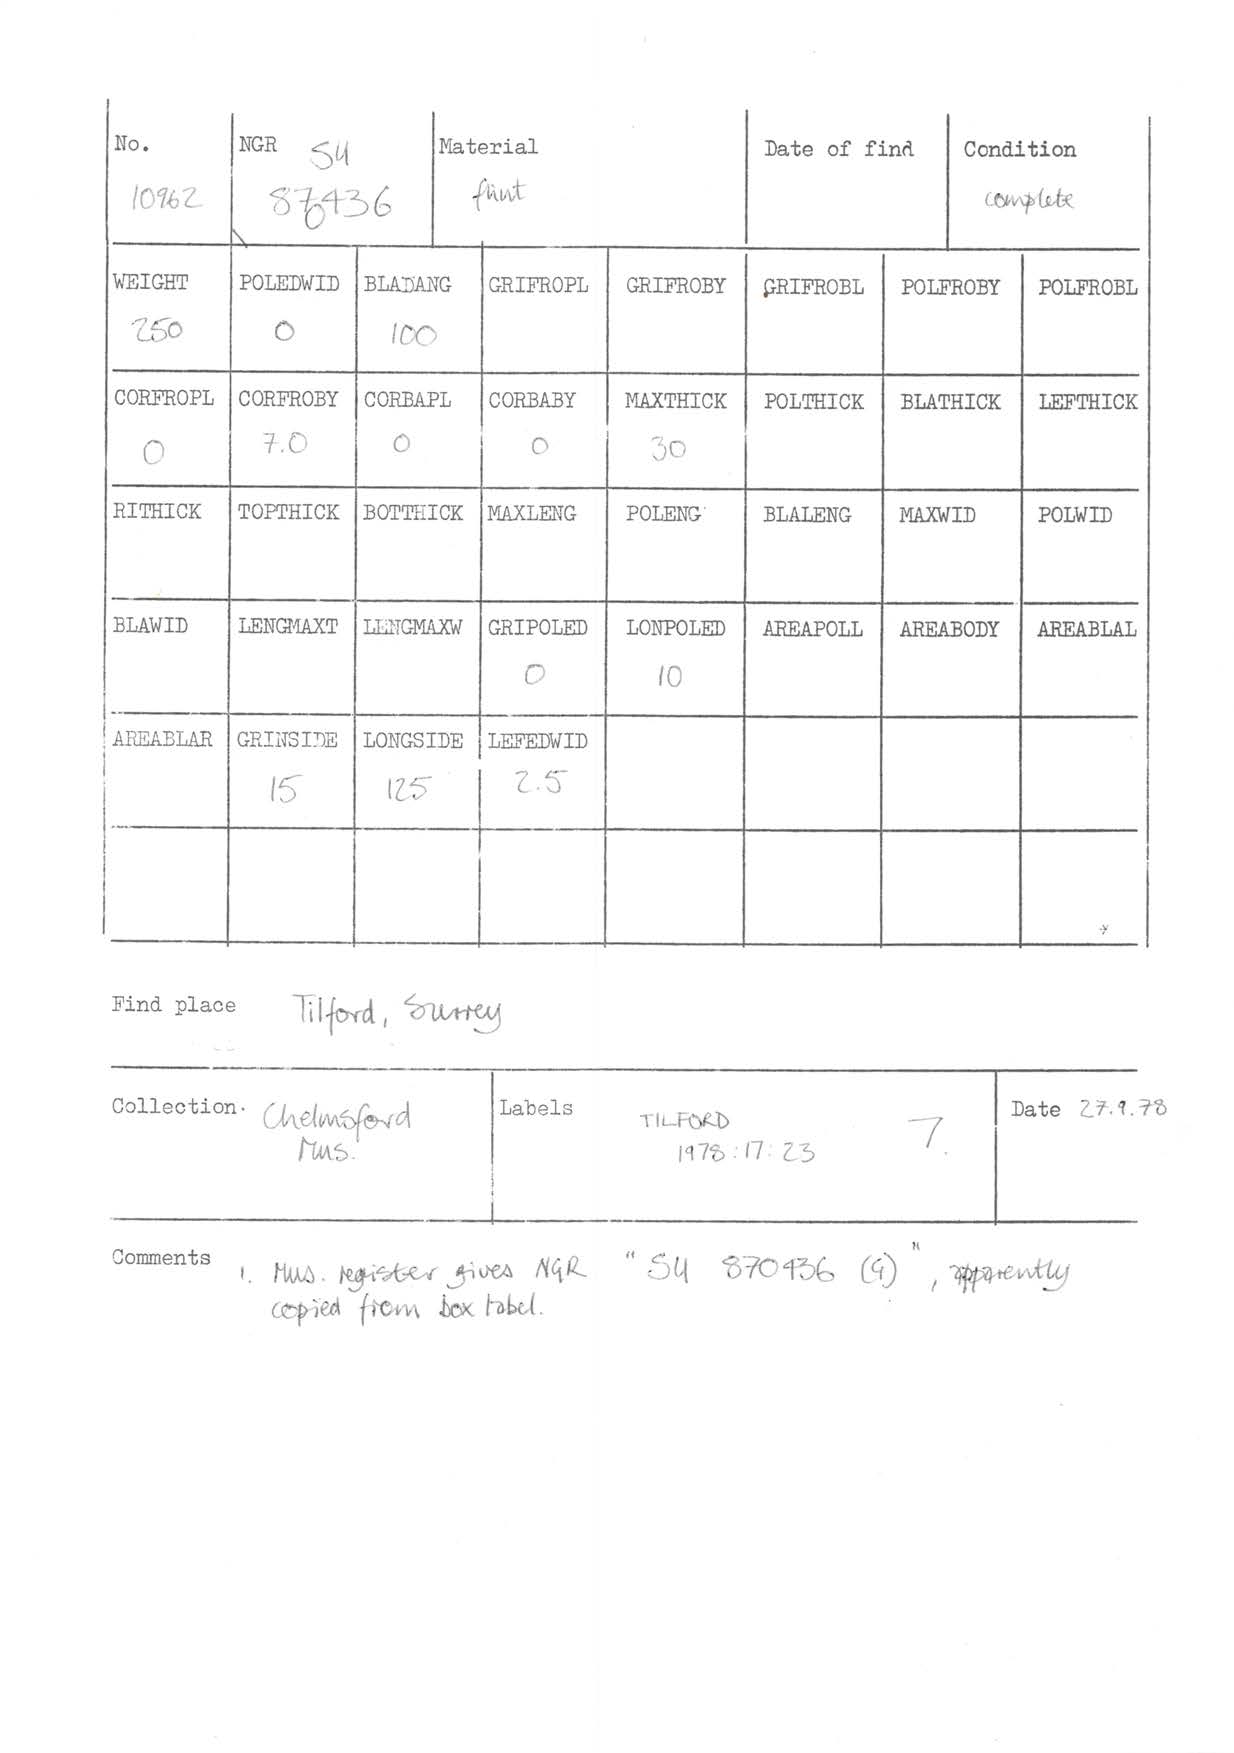 No. NGR SU Material Date of find Condition
10962 870436 flint complete
WEIGHT POLEDWID BLADANG GRIFROPL GRIFROBY GRIFROBL POLFROBY POLFROBL
250 0 100
CORFROPL CORFROBY CORBAPL CORBABY MAXTHICK POLTHICK BLATHICK LEFTHICK
0 7.0 0 0 30
RITHICK TOPTHICK BOTTHICK MAXLENG POLENG BLALENG MAXWID POLWID
BLAWID LENGMAXT LENGMAXW GRIPOLED LONPOLED AREAPOLL AREABODY AREABLAL
0 10
AREABLAR GRINSIDE LONGSIDE LEFEDWID
15 125 2.5
Find place Tilford, Surrey
Collection. Chelmsford Labels TILFORD 7. Date 27.9.78
Mus. 1978:17:23
Comments 1. Mus. register gives NGR "SU 870436 (G)", apparently
copied from box label.